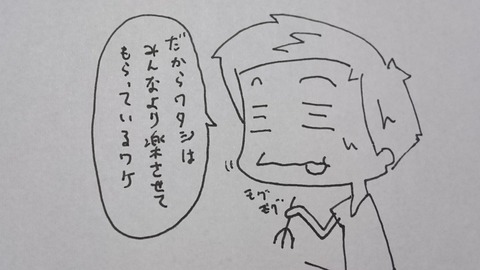 だからワタシは
みんなより楽させて
もらっているワケ
モグ
モグ